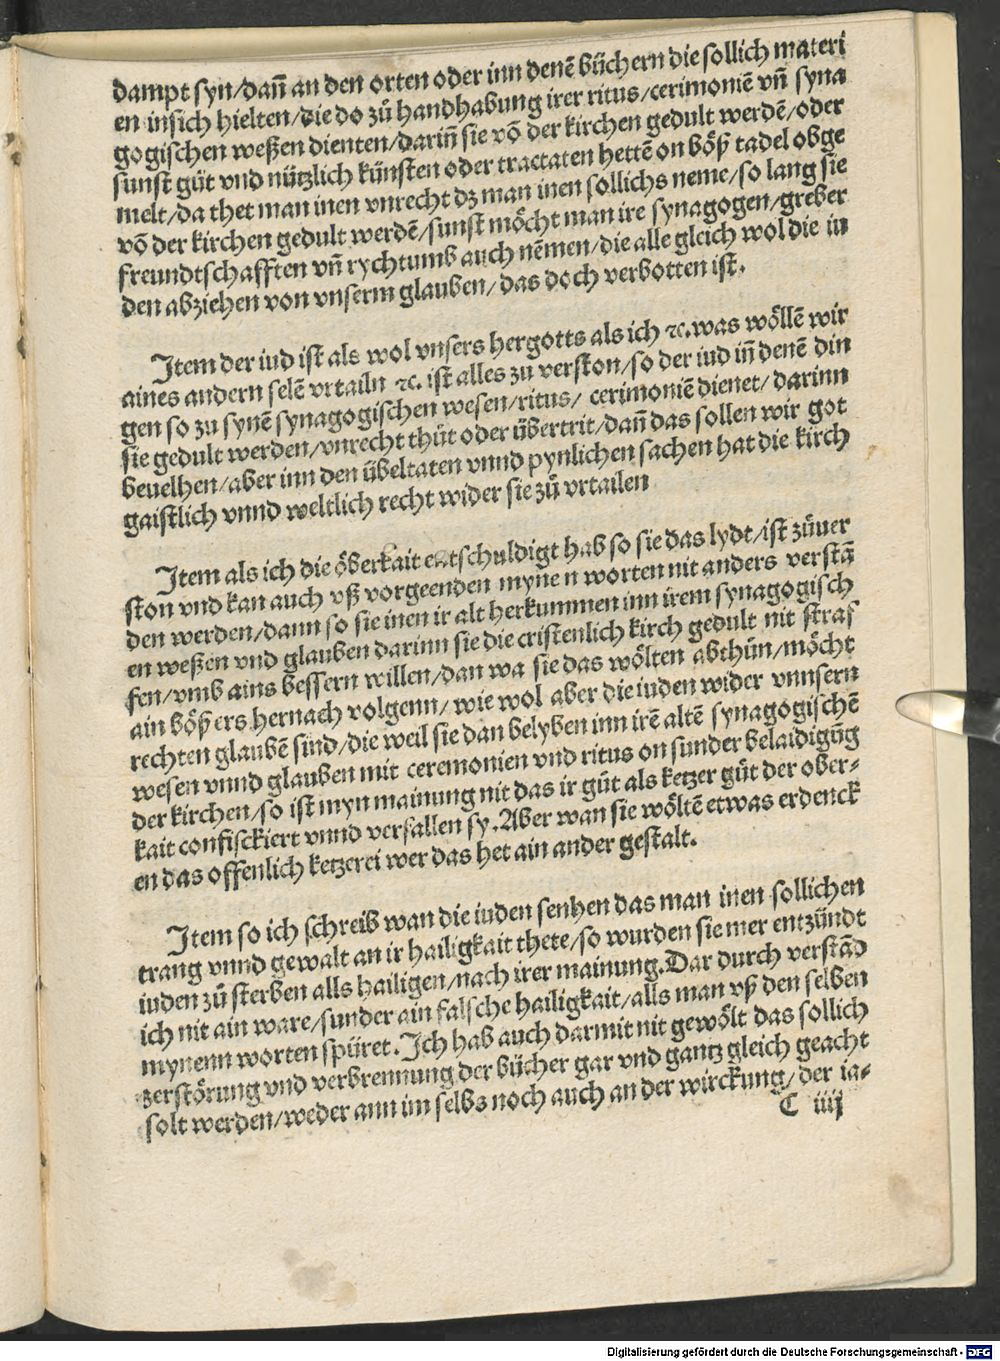 dampt syn/dañ an den orten oder inn denē bůchern die sollich materi
en insich hielten/die do zů handhabung irer ritus/cerimoniē vñ syna
gogischen weßen dienten/dariñ sie vō der kirchen gedult werdē/oder
sunst gůt vnd nützlich künsten oder tractaten hettē on bōß tadel obge
melt/da thet man inen vnrecht dz man inen sollichs neme/so lang sie
vō der kirchen gedult werdē/sunst mōcht man ire synagogen/greber
freundtschafften vñ rychtumb auch nēmen/die alle gleich wol die iu
den abziehen von vnserm glauben/das doch verbotten ist.
Item der iud ist als wol vnsers hergotts als ich ⁊c. was wöllē wir
aines andern selē vrtailn ⁊c. ist alles zu verston/so der iud iñ denē din
gen so zu synē synagogischen wesen/ritus/ cerimoniē dienet/ darinn
sie gedult werden/vnrecht thüt oder übertrit/dañ das sollen wir got
beuelhen/aber inn den übeltaten vnnd pynlichen sachen hat die kirch
gaistlich vnnd weltlich recht wider sie zů vrtailen
Item als ich die öberkait entschuldigt hab so sie das lydt/ist zůuer
ston vnd kan auch vß vorgeenden mynen worten nit anders verstā
den werden/dann so sie inen ir alt herkummen inn irem synagogisch
en weßen vnd glauben darinn sie die cristenlich kirch gedult nit straf
fen/vmb ains bessern willen/dan wa sie das wölten abthün/möcht
ain bößers hernach volgenn/wie wol aber die iuden wider vnnsern
rechten glaubē sind/die weil sie dan belyben inn irē altē synagogischē
wesen vnnd glauben mit ceremonien vnd ritus on sunder belaidigūg
der kirchen/so ist myn mainung nit das ir gůt als ketzer gůt der ober-
kait confisckiert vnnd verfallen sy. Aber wan sie wöltē etwas erdenck
en das offenlich ketzerei wer das het ain ander gestalt.
Item so ich schreib wan die iuden senhen das man inen sollichen
trang vnnd gewalt an ir hailigkait thete/so wurden sie mer entzündt
iuden zů sterben alls hailigen/nach irer mainung. Dar durch verstād
ich nit ain ware/sunder ain falsche hailigkait/alls man vß den selben
mynenn worten spüret. Ich hab auch darmit nit gewölt das sollich
zerstörung vnd verbrennung der bücher gar vnd gantz gleich geacht
solt werden/weder ann im selbs noch auch an der wirckung/der ia-
C iiij
Digitalisierung gefördert durch die Deutsche Forschungsgemeinschaft - DFG